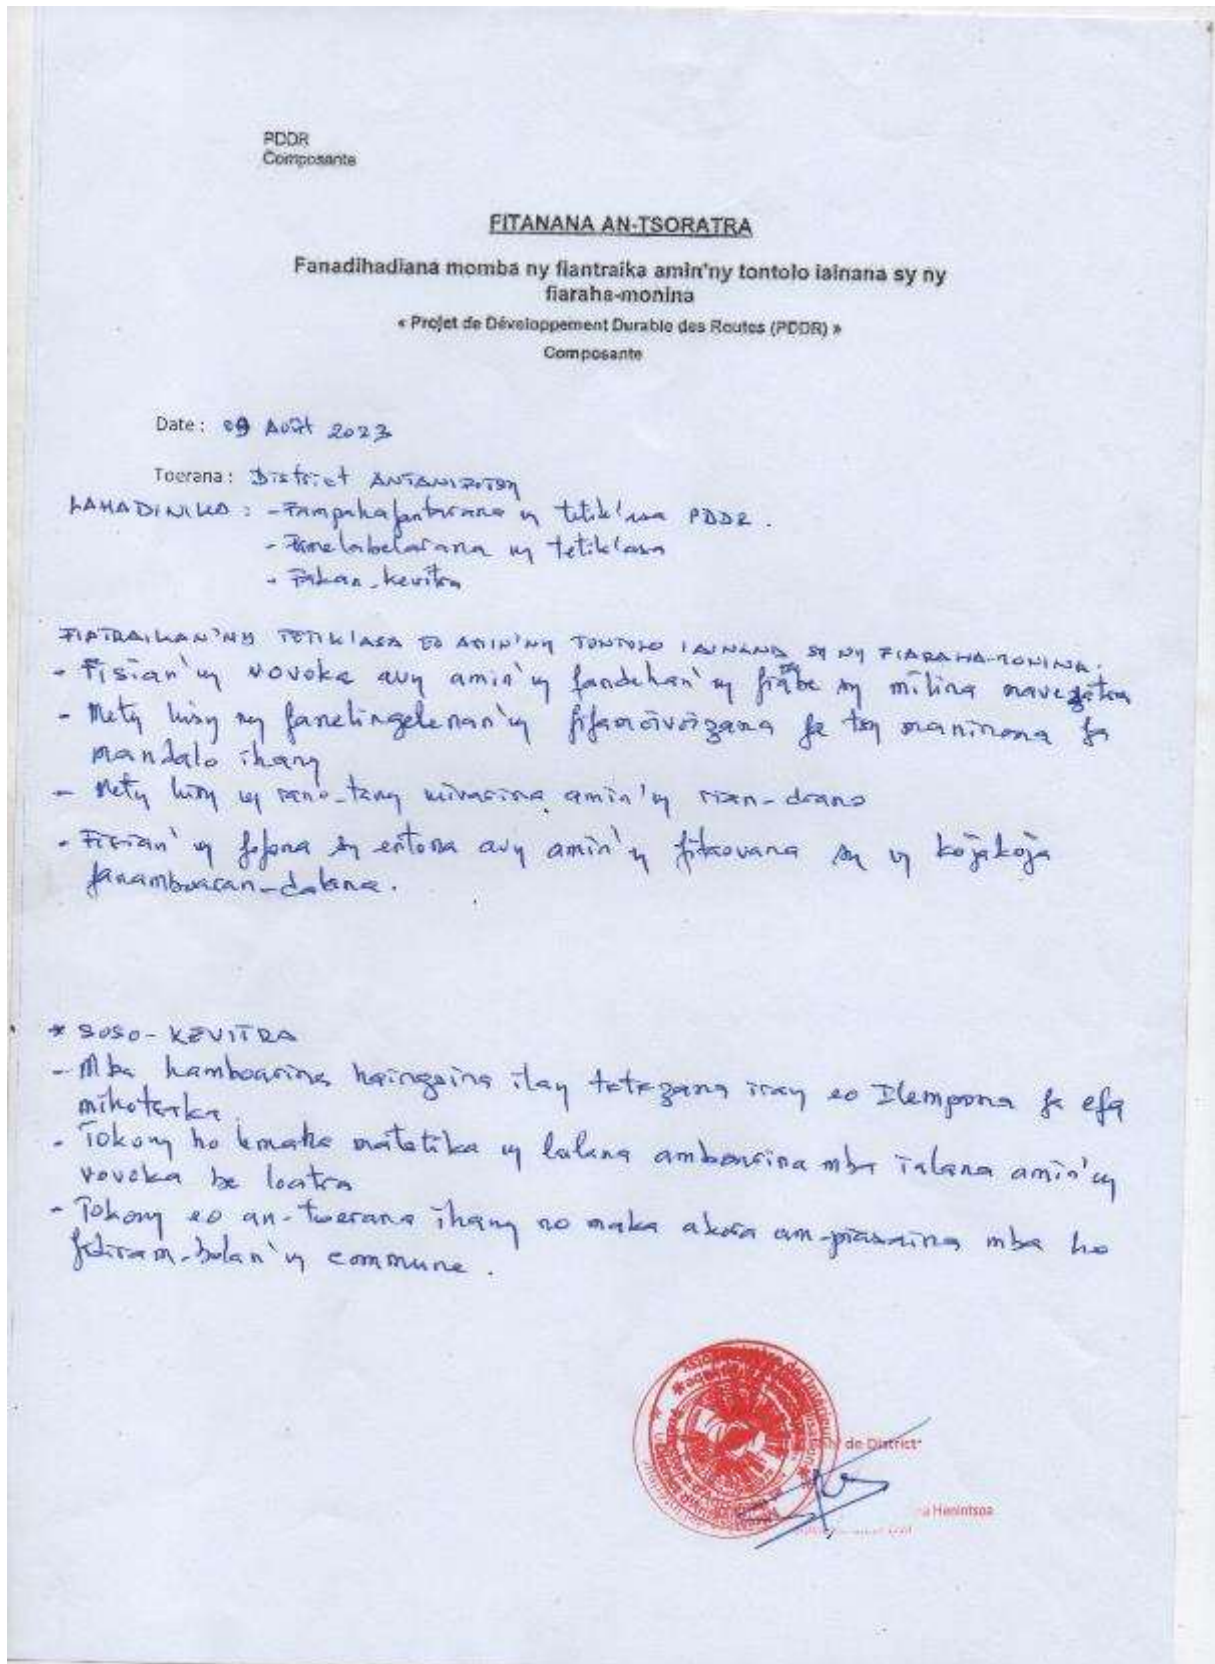 PDDR
Composante
FITANANA AN-TSORATRA
Fanadihadiana momba ny fiantraika amin'ny tontolo iainana sy ny
fiaraha-monina
« Projet de Développement Durable des Routes (PDDR) »
Composante
Date : 09 Août 2023
Toerana : District ANTANIFOTSY
LAHADINIKA : - Fampahafantarana ny tetik'asa PDDR.
- Fanelabelarana ny tetik'asa
- Fakan-kevitra
FIATRAIKAN'NY TETIK'ASA EO AMIN'NY TONTOLO IAINANA SY NY FIARAHA-MONINA.
- Fisian'ny vovoka avy amin'ny fandehan'ny fiarabe sy milina
- Mety hisy ny fanelingelenan'ny fifamoivoizana fa tsy maninona fa
mandalo ihany
- Mety hisy ny rano-tany amin'ny rian-drano
- Fisian'ny fofona sy entona avy amin'ny fitaovana sy ny kojakoja
fanamboaran-dalana.
* SOSO-KEVITRA
- Mba hamboarina haingaina ilay tetezana iray eo Ilempona fa efa
mihotsaka.
- Tokony ho matetika ny lalana amboarina mba ialana amin'ny
vovoka be loatra
- Tokony eo an-toerana ihany no maka akora am-piasaina mba ho
fidiram-bolan'ny commune.
de District
Henintsoa